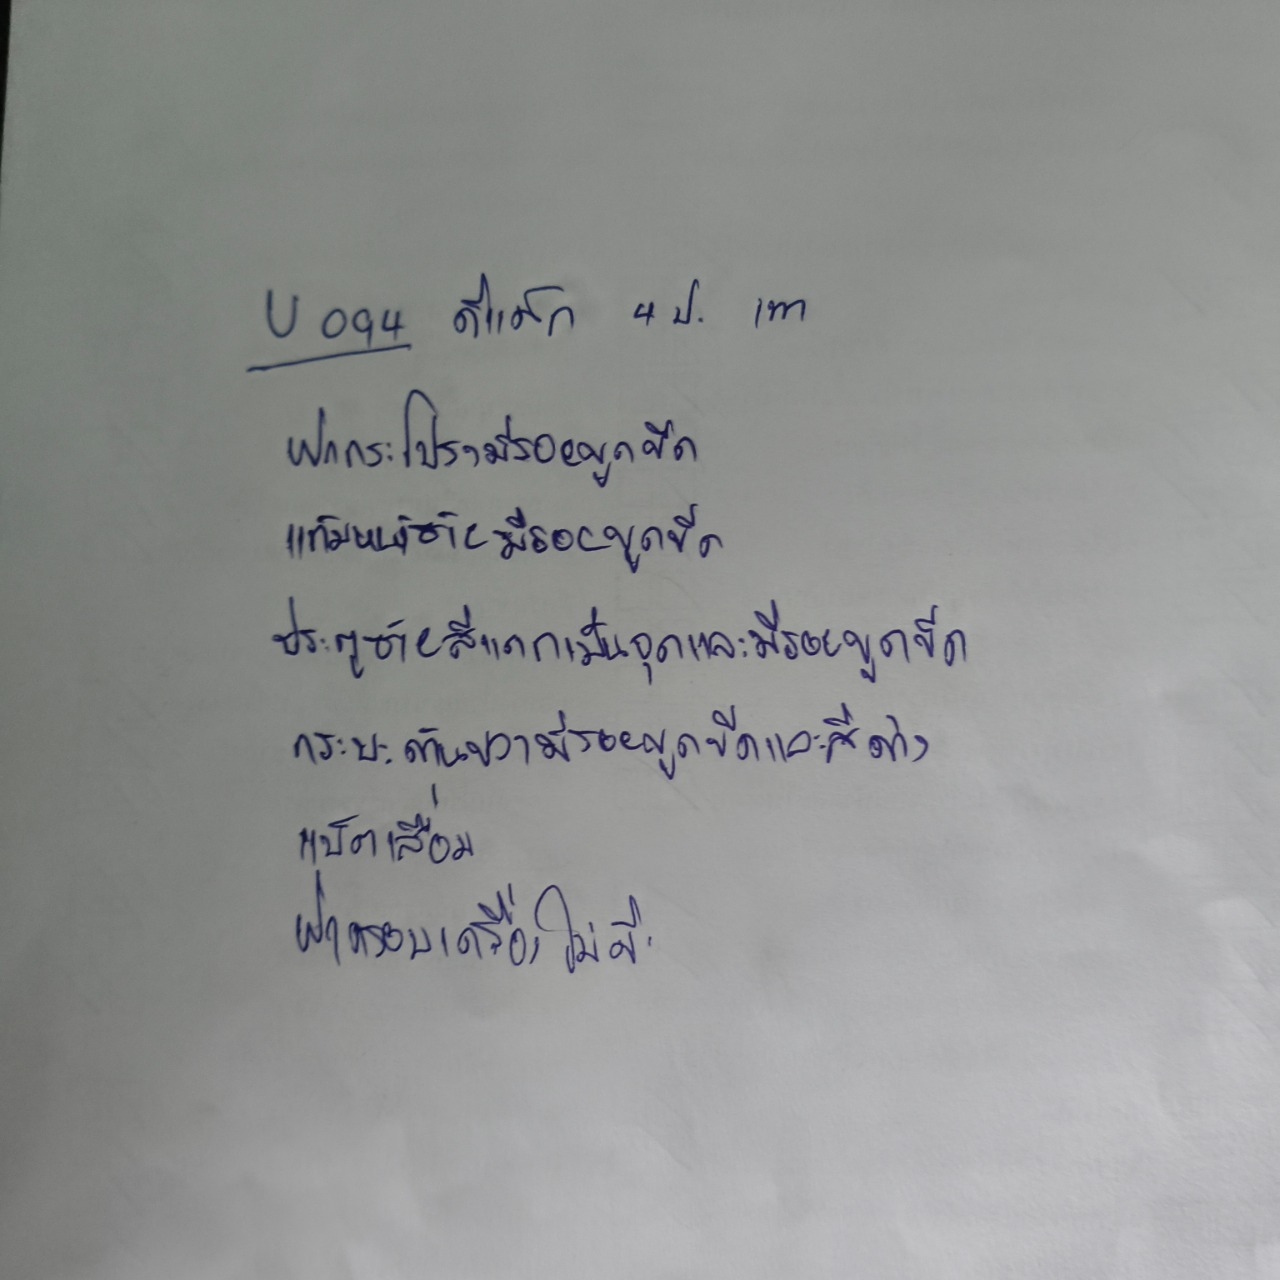 U 094 ดีแม๊ก 4 ป. เทา
ฝากระโปรงมีรอยขูดขีด
แก้มหน้าซ้ายมีรอยขูดขีด
ประตูซ้ายสีแตกเป็นจุดและมีรอยขูดขีด
กระบะด้านขวามีรอยขูดขีดและสีด่าง
แบ็ตเสื่อม
ฝาครอบเครื่องไม่มี